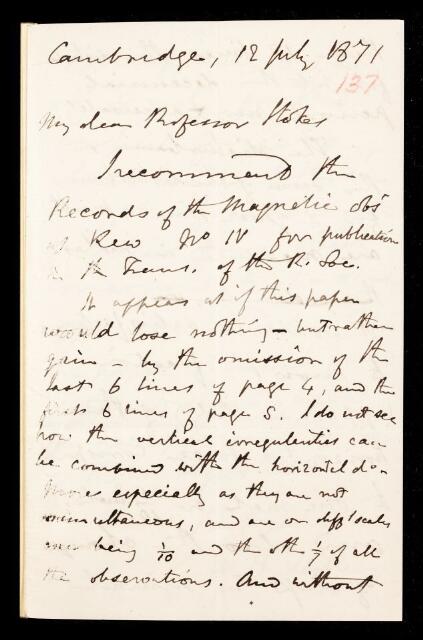 Cambridge, 12 July 1871
137
My dear Professor Stokes
I recommend the
Records of the Magnetic obs
at Kew No IV for publication
in the Trans. of the R. Soc.
It appears as if this paper
would lose nothing – but rather
gain – by the omission of the
last 6 lines of page 4, and the
first 6 lines of page 5. I do not see
how the vertical irregularities can
be combined with the horizontal do
especially as they are not
simultaneous, and are on diffl scales
one being 1/10 and the oth 1/7 of all
the observations. And without